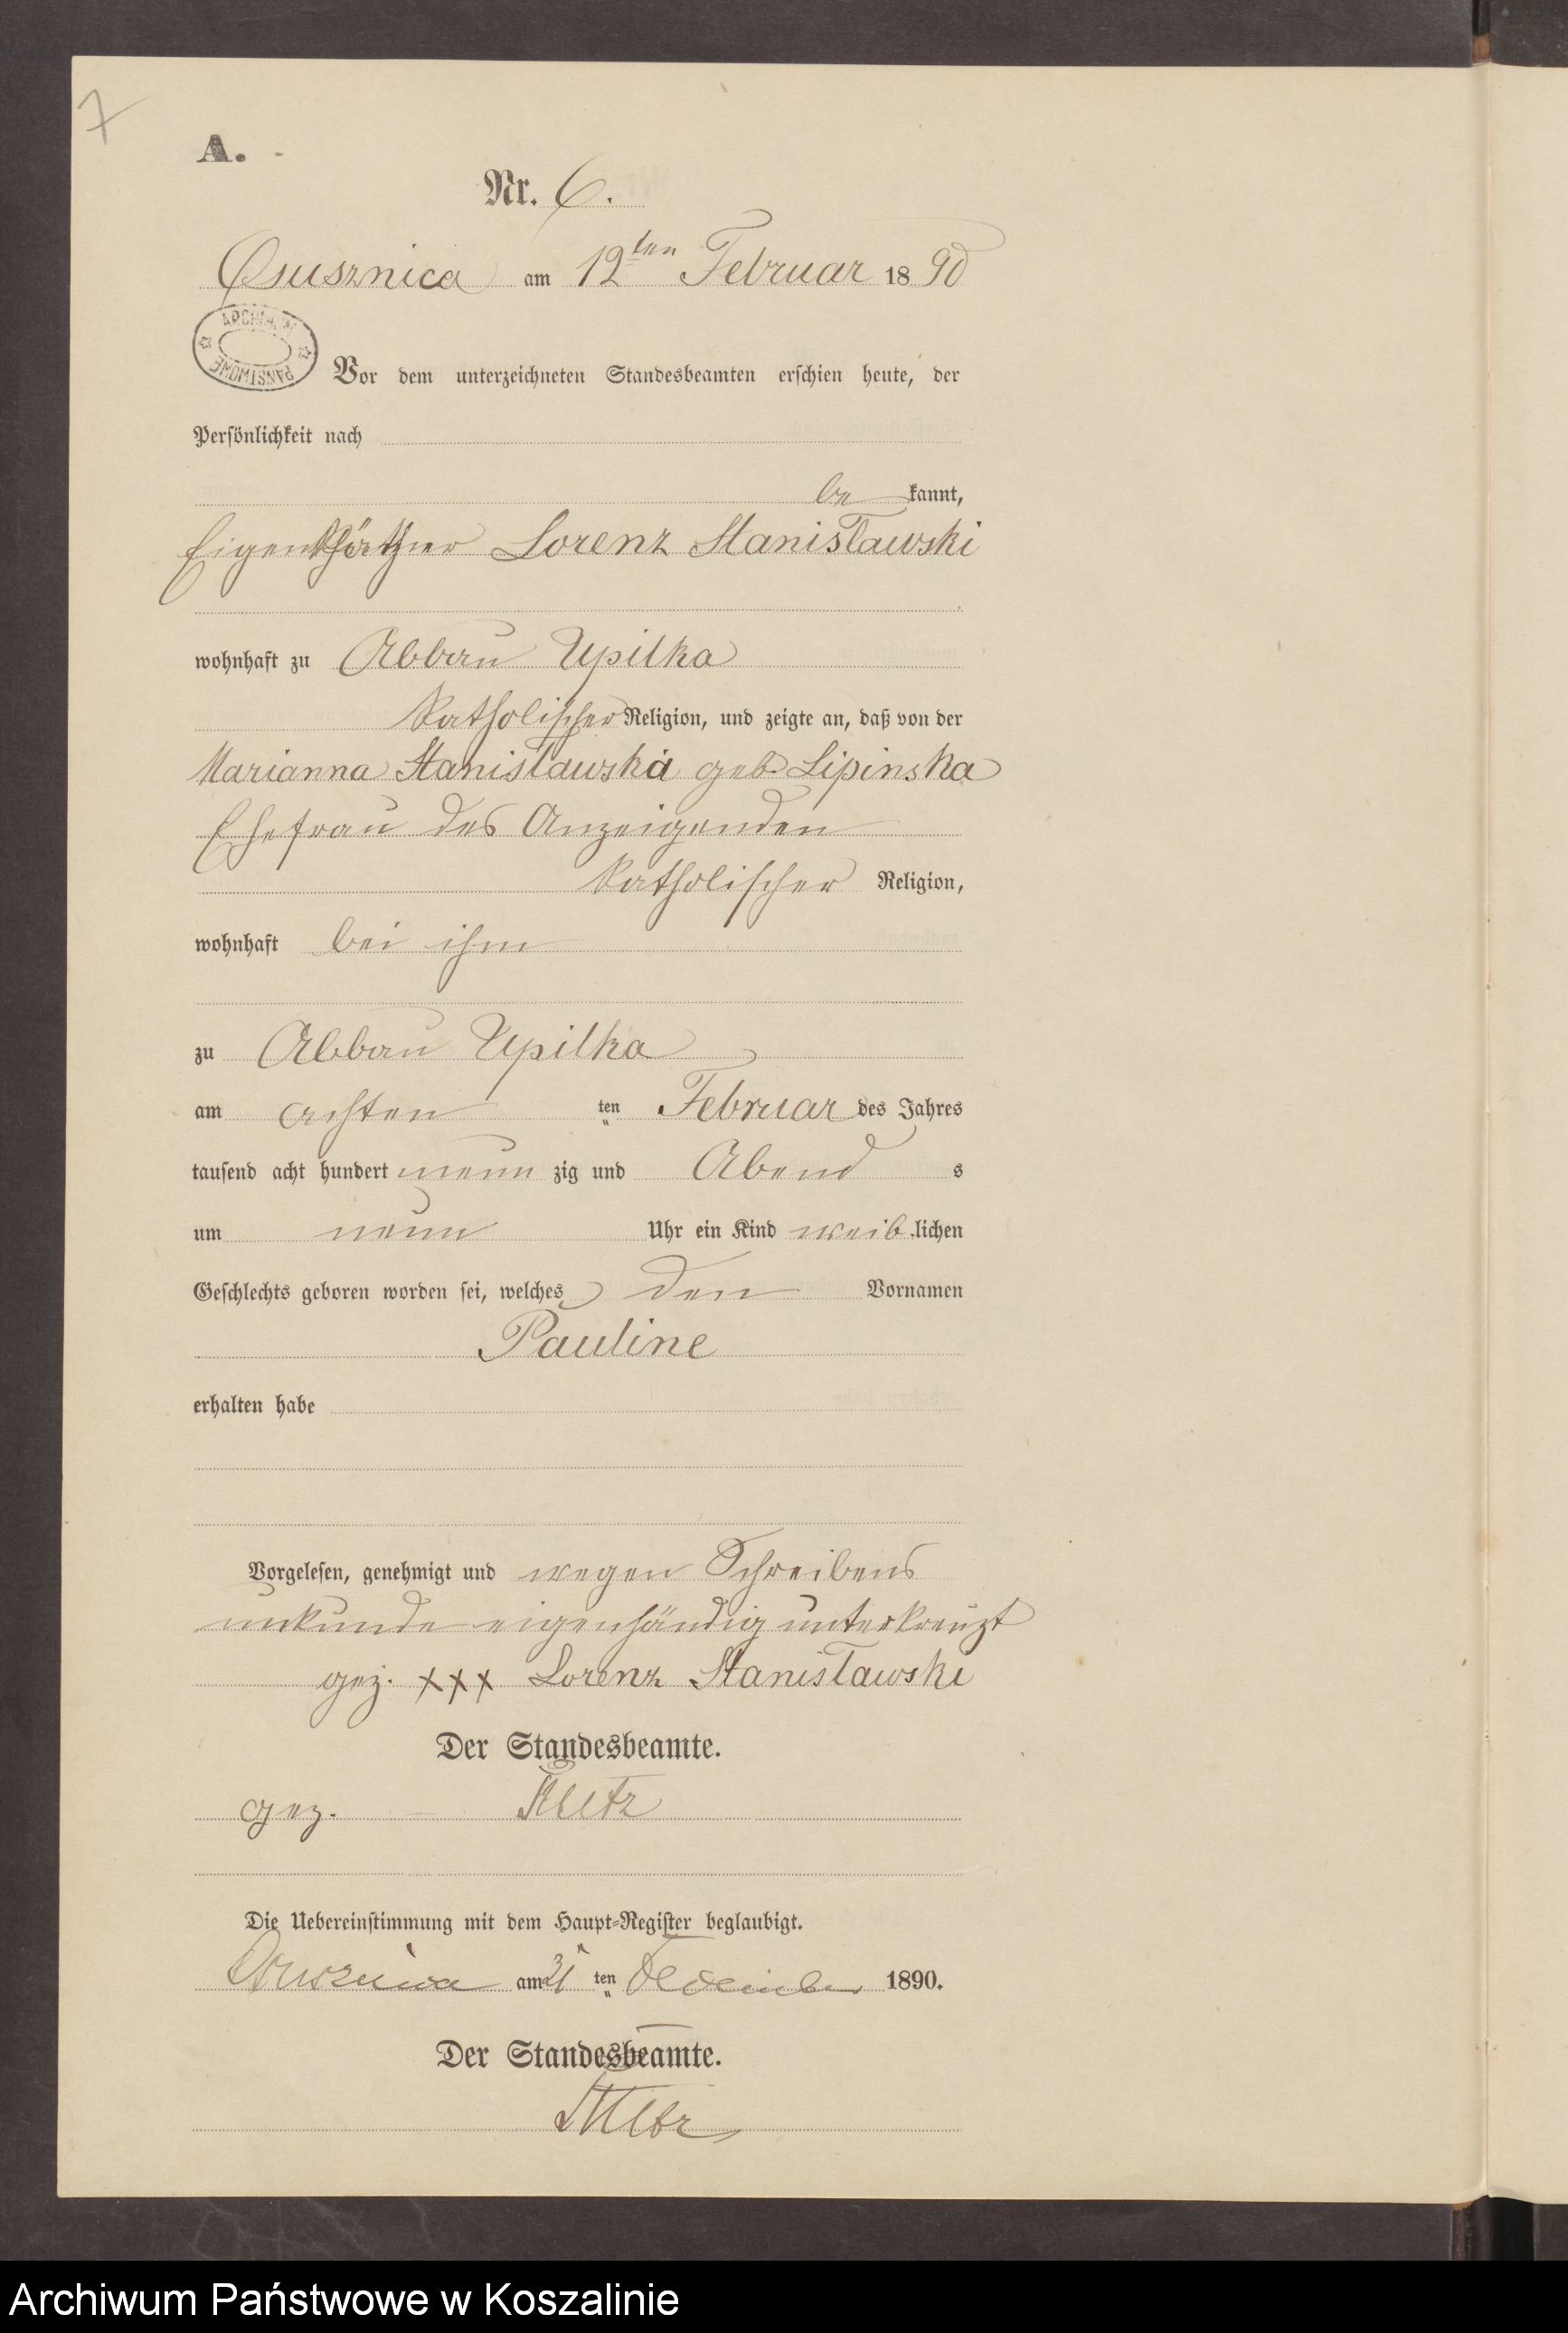 7
A.
Nr. 6.
Osusznica am 12ten Februar 1890
ARCHIWUM PAŃSTWOWE
Vor dem unterzeichneten Standesbeamten erschien heute, der
Persönlichkeit nach
be kannt,
Eigenkäthner Lorenz Stanisławski
wohnhaft zu Abbau Upilka
katholischer Religion, und zeigte an, daß von der
Marianna Stanisławska geb. Lipinska
Ehefrau des Anzeigenden
katholischer Religion,
wohnhaft bei ihm
zu Abbau Upilka
am achten ten Februar des Jahres
tausend acht hundert neun zig und Abend s
um neun Uhr ein Kind weib lichen
Geschlechts geboren worden sei, welches den Vornamen
Pauline
erhalten habe
Vorgelesen, genehmigt und wegen Schreibens
unkunde eigenhändig unterkreuzt
gez. xxx Lorenz Stanisławski
Der Standesbeamte.
gez.
Die Uebereinstimmung mit dem Haupt-Register beglaubigt.
am 31 ten Dezember 1890.
Der Standesbeamte.
Archiwum Państwowe w Koszalinie